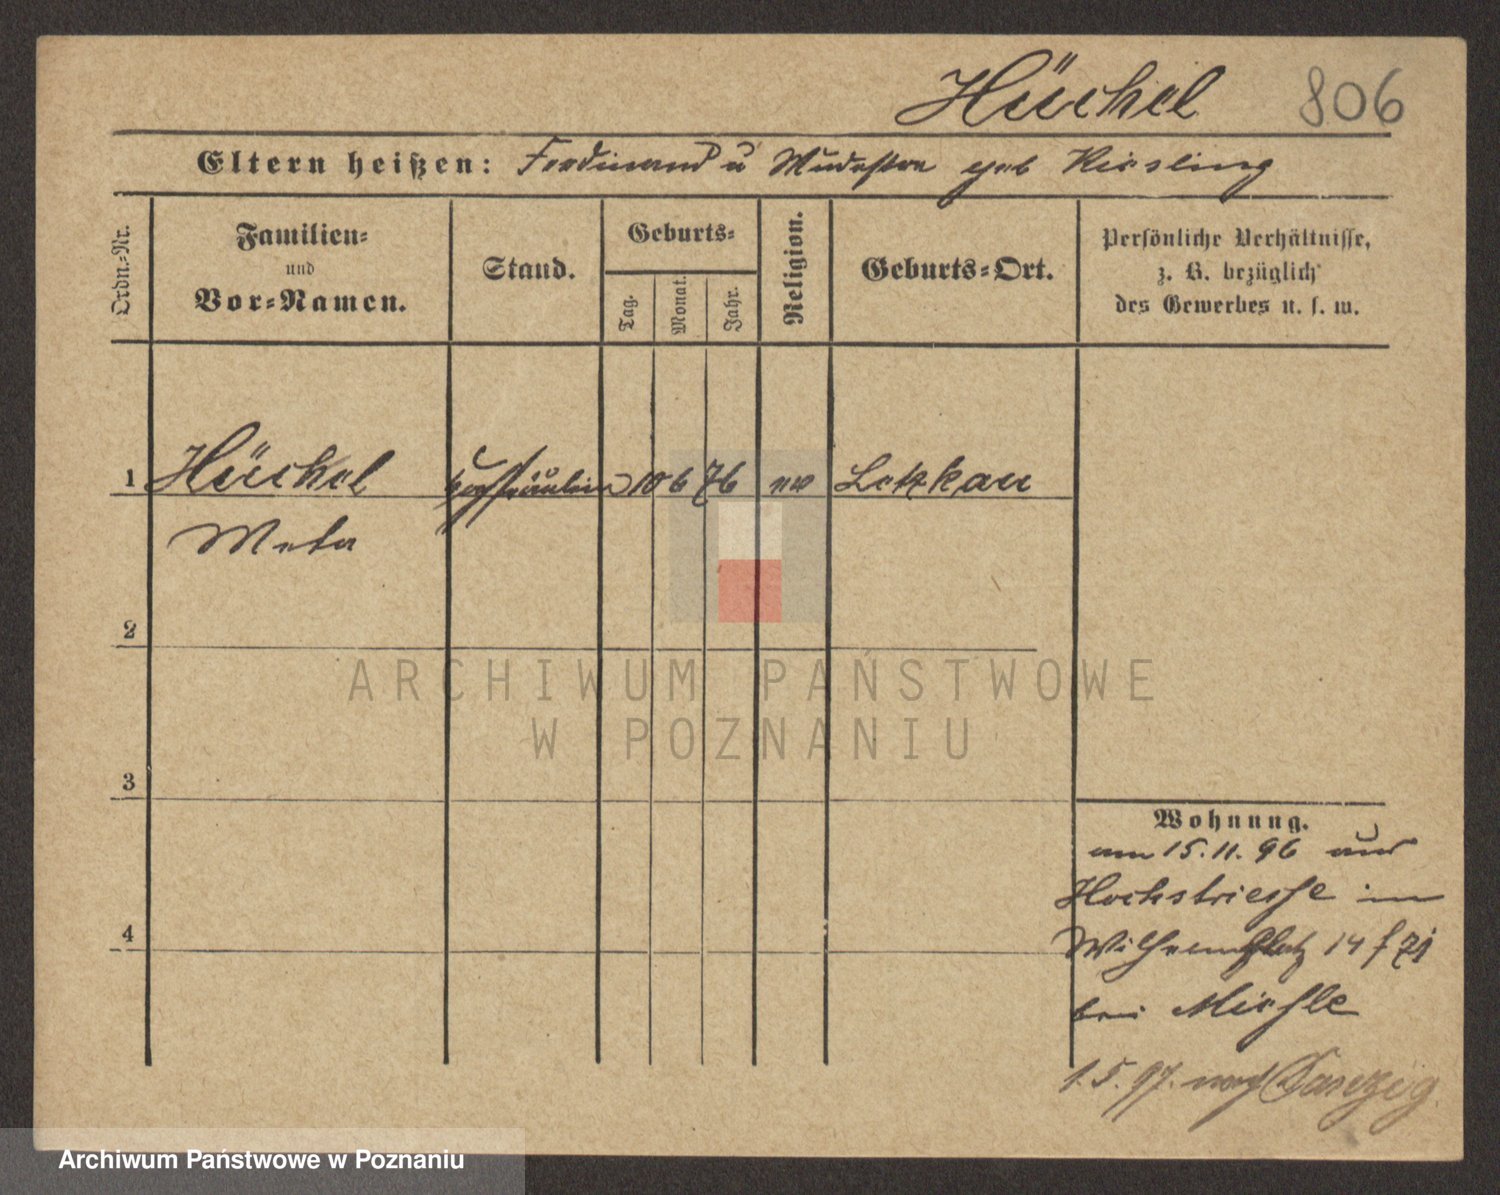 Hückel 806
Eltern heißen: Ferdinand u geb Kiesling
Ordn.-Nr.
Familien-
und
Vor-Namen.
Stand.
Geburts-
Tag.
Monat.
Jahr.
Religion.
Geburts-Ort.
Persönliche Verhältnisse,
z. B. bezüglich
des Gewerbes u. s. w.
1 Hückel 10 6 76 ev Letzkau
Meta
2
3
4
Wohnung.
am 15.11.96 aus
Hochstriess in
Wilhelmplatz 14
bei
1.5.97. nach Danzig
ARCHIWUM PAŃSTWOWE
W POZNANIU
Archiwum Państwowe w Poznaniu